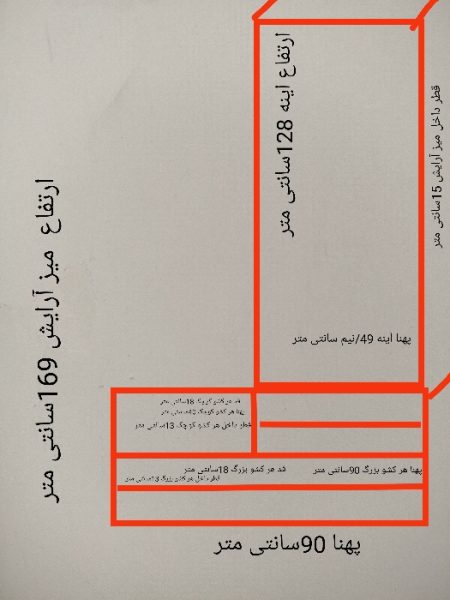 ارتفاع اینه 128سانتی متر
قطر داخل میز آرایش 15سانتی متر
ارتفاع میز آرایش 169سانتی متر
پهنا اینه 49/نیم سانتی متر
قد هر کشو کوچک 18سانتی متر
پهنا هر کشو کوچک سانتی متر
قطر داخل هر کشو کوچک 13سانتی متر
پهنا هر کشو بزرگ 90سانتی متر
قد هر کشو بزرگ 18سانتی متر
قطر داخل هر کشو بزرگ سانتی متر
پهنا 90سانتی متر